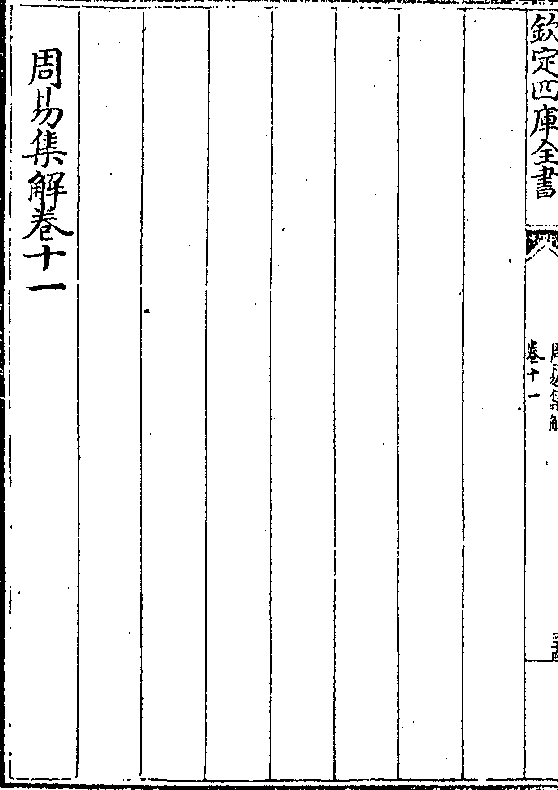 欽定四庫全書
周易集解
卷十一
周易集解卷十一